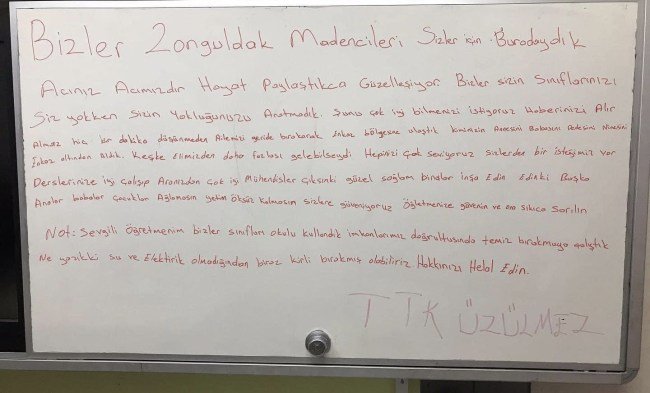 Bizler Zonguldak Madencileri Sizler için Buradaydık
Acınız Acımızdır Hayat Paylaştıkca Güzelleşiyor. Bizler sizin Sınıflarınızı
Siz yokken Sizin Yokluğunuzu Aratmadık. Şunu çok iyi bilmenizi istiyoruz Haberinizi Alır
Almaz hiç bir dakika düşünmeden Ailemizi geride bırakarak Enkaz bölgesine ulaştık kiminizin Annesini Babasını Dedesini Ninesini
Enkaz altından Aldık. Keşke Elimizden daha fazlası gelebilseydi Hepinizi Çok Seviyoruz Sizlerden bir isteğimiz var
Derslerinize iyi çalışıp Aranızdan Çok iyi Mühendisler Çıksınki güzel sağlam binalar inşa Edin Edinki Başka
Analar babalar çocuklar Ağlamasın yetim Öksüz kalmasın sizlere güveniyoruz Öğretmenize güvenin ve ona sıkıca Sarılın
Not: Sevgili Öğretmenim bizler sınıfları okulu kullandık imkanlarımız doğrultusunda temiz bırakmaya çalıştık
Ne yazıkki su ve Elektirik olmadığından biraz kirli bırakmış olabiliriz. Hakkınızı Helal Edin.
TTK ÜZÜLMEZ